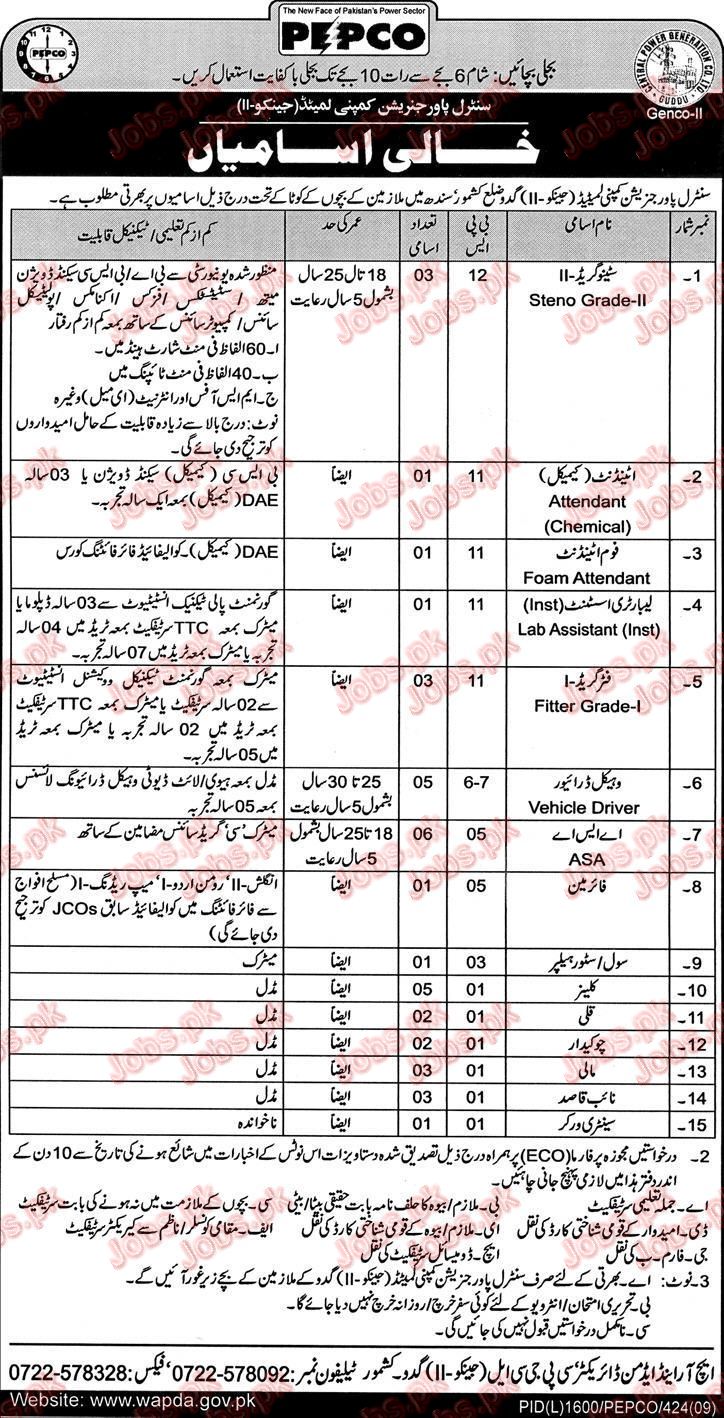 The New Face of Pakistan's Power Sector
PEPCO
بجلی بچائیں: شام 6 بجے سے رات 10 بجے تک بجلی باکفایت استعمال کریں۔
CENTRAL POWER GENERATION CO. LTD.
GUDDU
Genco-II
سنٹرل پاور جنریشن کمپنی لمیٹڈ (جینکو-II)
خالی اسامیاں
سنٹرل پاور جنریشن کمپنی لمیٹیڈ (جینکو-II) گدو ضلع کشمور سندھ میں ملازمین کے بچوں کے کوٹا کے تحت درج ذیل اسامیوں پر بھرتی مطلوب ہے۔
نمبر شمار نام اسامی بی پی ایس تعداد اسامی عمر کی حد کم از کم تعلیمی/ٹیکنیکل قابلیت
1۔ سٹینو گریڈ-II 12 03 18 تا 25 سال منظور شدہ یونیورسٹی سے بی اے/بی ایس سی سیکنڈ ڈویژن
Steno Grade-II بشمول 5 سال رعایت میتھ/سٹیٹسٹکس/فزکس/اکنامکس/پولیٹیکل
سائنس/کمپیوٹر سائنس کے ساتھ بمعہ کم از کم رفتار
ا۔ 60 الفاظ فی منٹ شارٹ ہینڈ میں۔
ب۔ 40 الفاظ فی منٹ ٹائپنگ میں
ج۔ ایم ایس آفس اور انٹرنیٹ (ای میل) وغیرہ
نوٹ: درج بالا سے زیادہ قابلیت کے حامل امیدواروں
کو ترجیح دی جائے گی۔
2۔ اٹینڈنٹ (کیمیکل) 11 01 ایضاً بی ایس سی (کیمیکل) سیکنڈ ڈویژن یا 03 سالہ
Attendant DAE (کیمیکل) بمعہ ایک سالہ تجربہ۔
(Chemical)
3۔ فوم اٹینڈنٹ 11 01 ایضاً DAE (کیمیکل)۔ کوالیفائیڈ فائر فائٹنگ کورس
Foam Attendant
4۔ لیبارٹری اسسٹنٹ (Inst) 11 01 ایضاً گورنمنٹ پالی ٹیکنیک انسٹیٹیوٹ سے 03 سالہ ڈپلوما یا
Lab Assistant (Inst) میٹرک بمعہ TTC سرٹیفکیٹ بمعہ ٹریڈ میں 04 سالہ
تجربہ یا میٹرک بمعہ ٹریڈ میں 07 سالہ تجربہ۔
5۔ فٹر گریڈ-I 11 03 ایضاً میٹرک بمعہ گورنمنٹ ٹیکنیکل ووکیشنل انسٹیٹیوٹ
Fitter Grade-I سے 02 سالہ سرٹیفکیٹ یا میٹرک بمعہ TTC سرٹیفکیٹ
بمعہ ٹریڈ میں 02 سالہ تجربہ یا میٹرک بمعہ ٹریڈ
میں 05 سالہ تجربہ۔
6۔ وہیکل ڈرائیور 6-7 05 25 تا 30 سال مڈل بمعہ ہیوی/لائٹ ڈیوٹی وہیکل ڈرائیونگ لائسنس
Vehicle Driver بشمول 5 سال رعایت بمعہ 05 سالہ تجربہ
7۔ اے ایس اے 05 06 18 تا 25 سال بشمول میٹرک 'سی' گریڈ سائنس مضامین کے ساتھ
ASA 5 سال رعایت
8۔ فائر مین 05 01 ایضاً انگلش-II، رومن اردو-I، میپ ریڈنگ-I (مسلح افواج
سے فائر فائٹنگ میں کوالیفائیڈ سابق JCOs کو ترجیح
دی جائے گی)
9۔ سول/سٹور ہیلپر 03 01 ایضاً میٹرک
10۔ کلینر 01 05 ایضاً مڈل
11۔ قلی 01 02 ایضاً مڈل
12۔ چوکیدار 01 02 ایضاً مڈل
13۔ مالی 01 03 ایضاً مڈل
14۔ نائب قاصد 01 03 ایضاً مڈل
15۔ سینٹری ورکر 01 01 ایضاً ناخواندہ
2۔ درخواستیں مجوزہ پرفارما (ECO) پر ہمراہ درج ذیل تصدیق شدہ دستاویزات اس نوٹس کے اخبارات میں شائع ہونے کی تاریخ سے 10 دن کے
اندر دفتر ہذا میں لازمی پہنچ جانی چاہئیں۔
اے۔ جملہ تعلیمی سرٹیفکیٹ بی۔ ملازم/بیوہ کا حلف نامہ بابت حقیقی بیٹا/بیٹی سی۔ بچوں کے ملازمت میں نہ ہونے کی بابت سرٹیفکیٹ
ڈی۔ امیدوار کے قومی شناختی کارڈ کی نقل ای۔ ملازم/بیوہ کے قومی شناختی کارڈ کی نقل ایف۔ مقامی کونسلر/ناظم سے کیریکٹر سرٹیفکیٹ
جی۔ فارم۔ب کی نقل ایچ۔ ڈومیسائل سرٹیفکیٹ کی نقل
3۔ نوٹ: اے۔ بھرتی کے لئے صرف سنٹرل پاور جنریشن کمپنی لمیٹڈ (جینکو-II) گدو کے ملازمین کے بچے زیر غور آئیں گے۔
بی۔ تحریری امتحان/انٹرویو کے لئے کوئی سفر خرچ/روزانہ خرچ نہیں دیا جائے گا۔
سی۔ نامکمل درخواستیں قبول نہیں کی جائیں گی۔
ایچ آر اینڈ ایڈمن ڈائریکٹر سی پی جی سی ایل (جینکو-II) گدو۔ کشمور ٹیلیفون نمبر: 0722-578092، فیکس: 0722-578328
Website: www.wapda.gov.pk PID(L)1600/PEPCO/424(09)
Jobs.pk